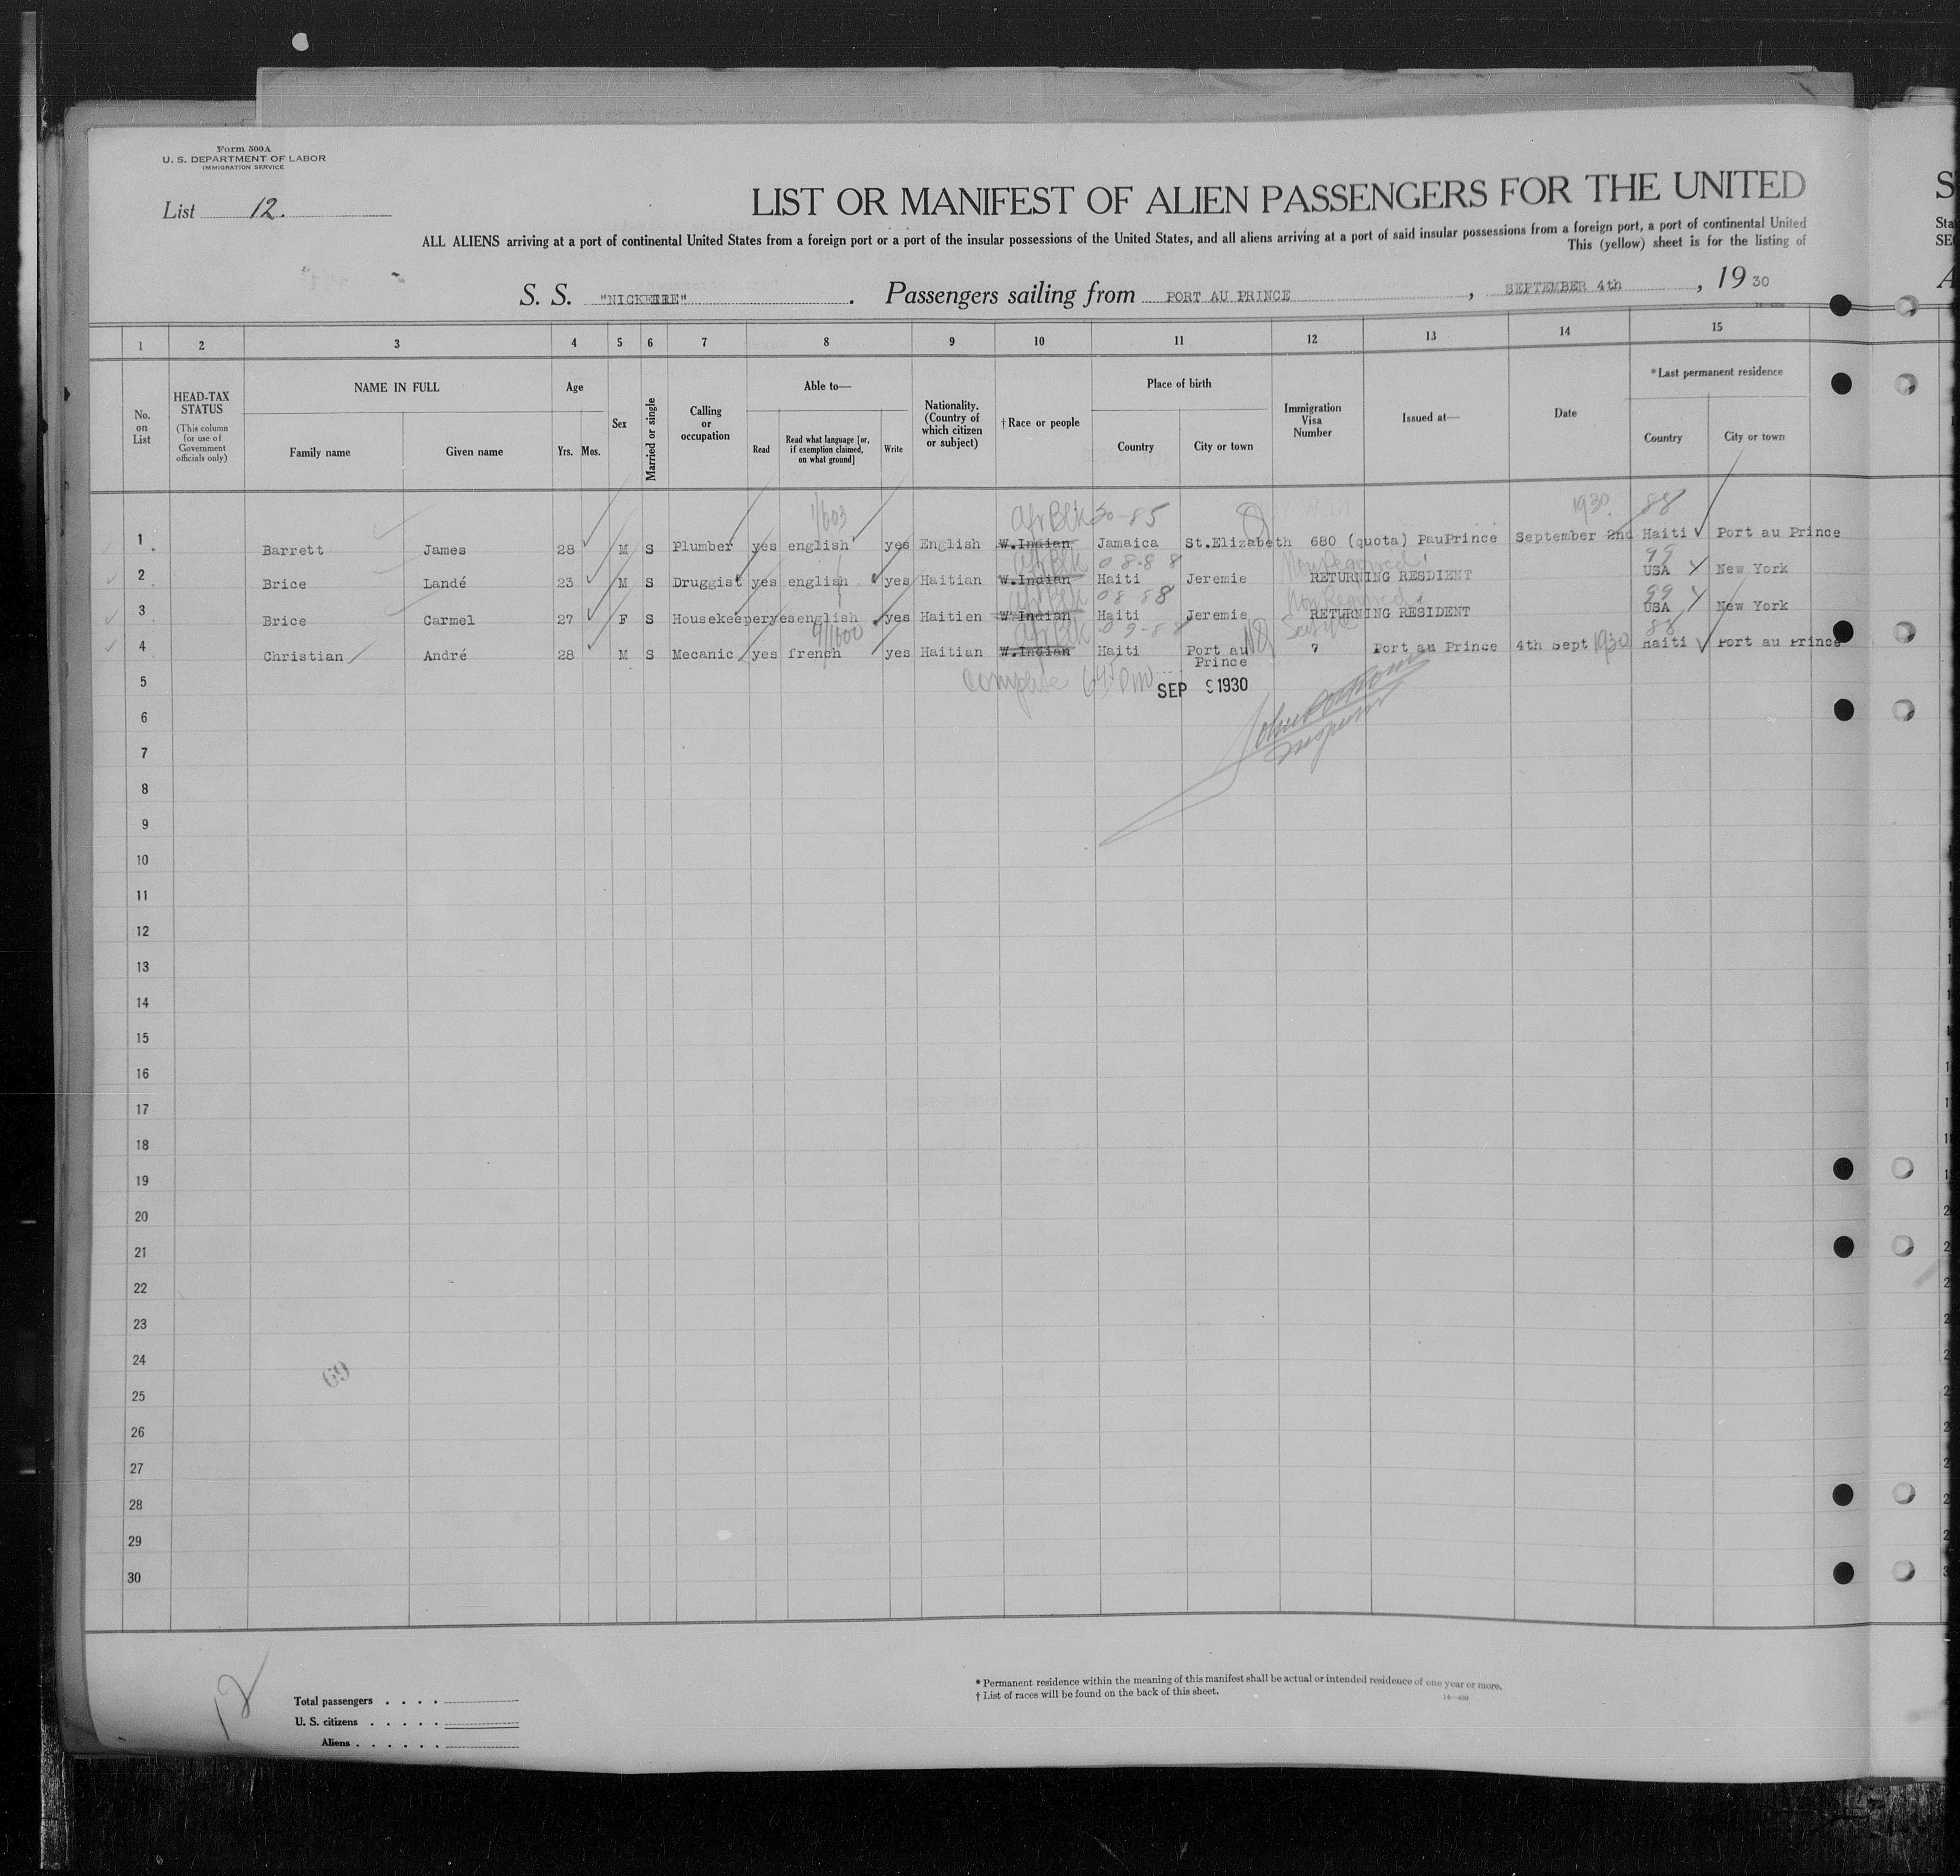 Form 500A
U. S. DEPARTMENT OF LABOR
IMMIGRATION SERVICE
List 12.
LIST OR MANIFEST OF ALIEN PASSENGERS FOR THE UNITED
ALL ALIENS arriving at a port of continental United States from a foreign port or a port of the insular possessions of the United States, and all aliens arriving at a port of said insular possessions from a foreign port, a port of continental United
This (yellow) sheet is for the listing of
S. S. . Passengers sailing from PORT AU PRINCE , SEPTEMBER 4th , 1930
1 2 3 4 5 6 7 8 9 10 11 12 13 14 15
No. on List
HEAD-TAX STATUS (This column for use of Government officials only)
NAME IN FULL
Family name Given name
Age
Yrs. Mos.
Sex
Married or single
Calling or occupation
Able to—
Read Read what language [or, if exemption claimed, on what ground] Write
Nationality. (Country of which citizen or subject)
† Race or people
Place of birth
Country City or town
Immigration Visa Number
Issued at—
Date
* Last permanent residence
Country City or town
1/603 Afr Blk 30-85 1930 88
1 Barrett James 28 M S Plumber yes english yes English W.Indian Jamaica St.Elizabeth 680 (quota) PauPrince September 2nd Haiti Port au Prince
Afr Blk 08-88 Non Required 99
2 Brice Landé 23 M S Druggist yes english yes Haitian W.Indian Haiti Jeremie RETURNING RESDIENT USA New York
Afr Blk 08-88 Non Required 99
3 Brice Carmel 27 F S Housekeeper yes english yes Haitien W.Indian Haiti Jeremie RETURNING RESIDENT USA New York
Afr Blk 09-88 88
4 Christian André 28 M S Mecanic yes french yes Haitian W.Indian Haiti Port au Prince 7 Port au Prince 4th Sept 1930 Haiti Port au Prince
5 SEP 9 1930
6
Inspector
7
8
9
10
11
12
13
14
15
16
17
18
19
20
21
22
23
24
69
25
26
27
28
29
30
12
Total passengers . . . .
U. S. citizens . . . . .
Aliens . . . . . .
* Permanent residence within the meaning of this manifest shall be actual or intended residence of one year or more.
† List of races will be found on the back of this sheet.